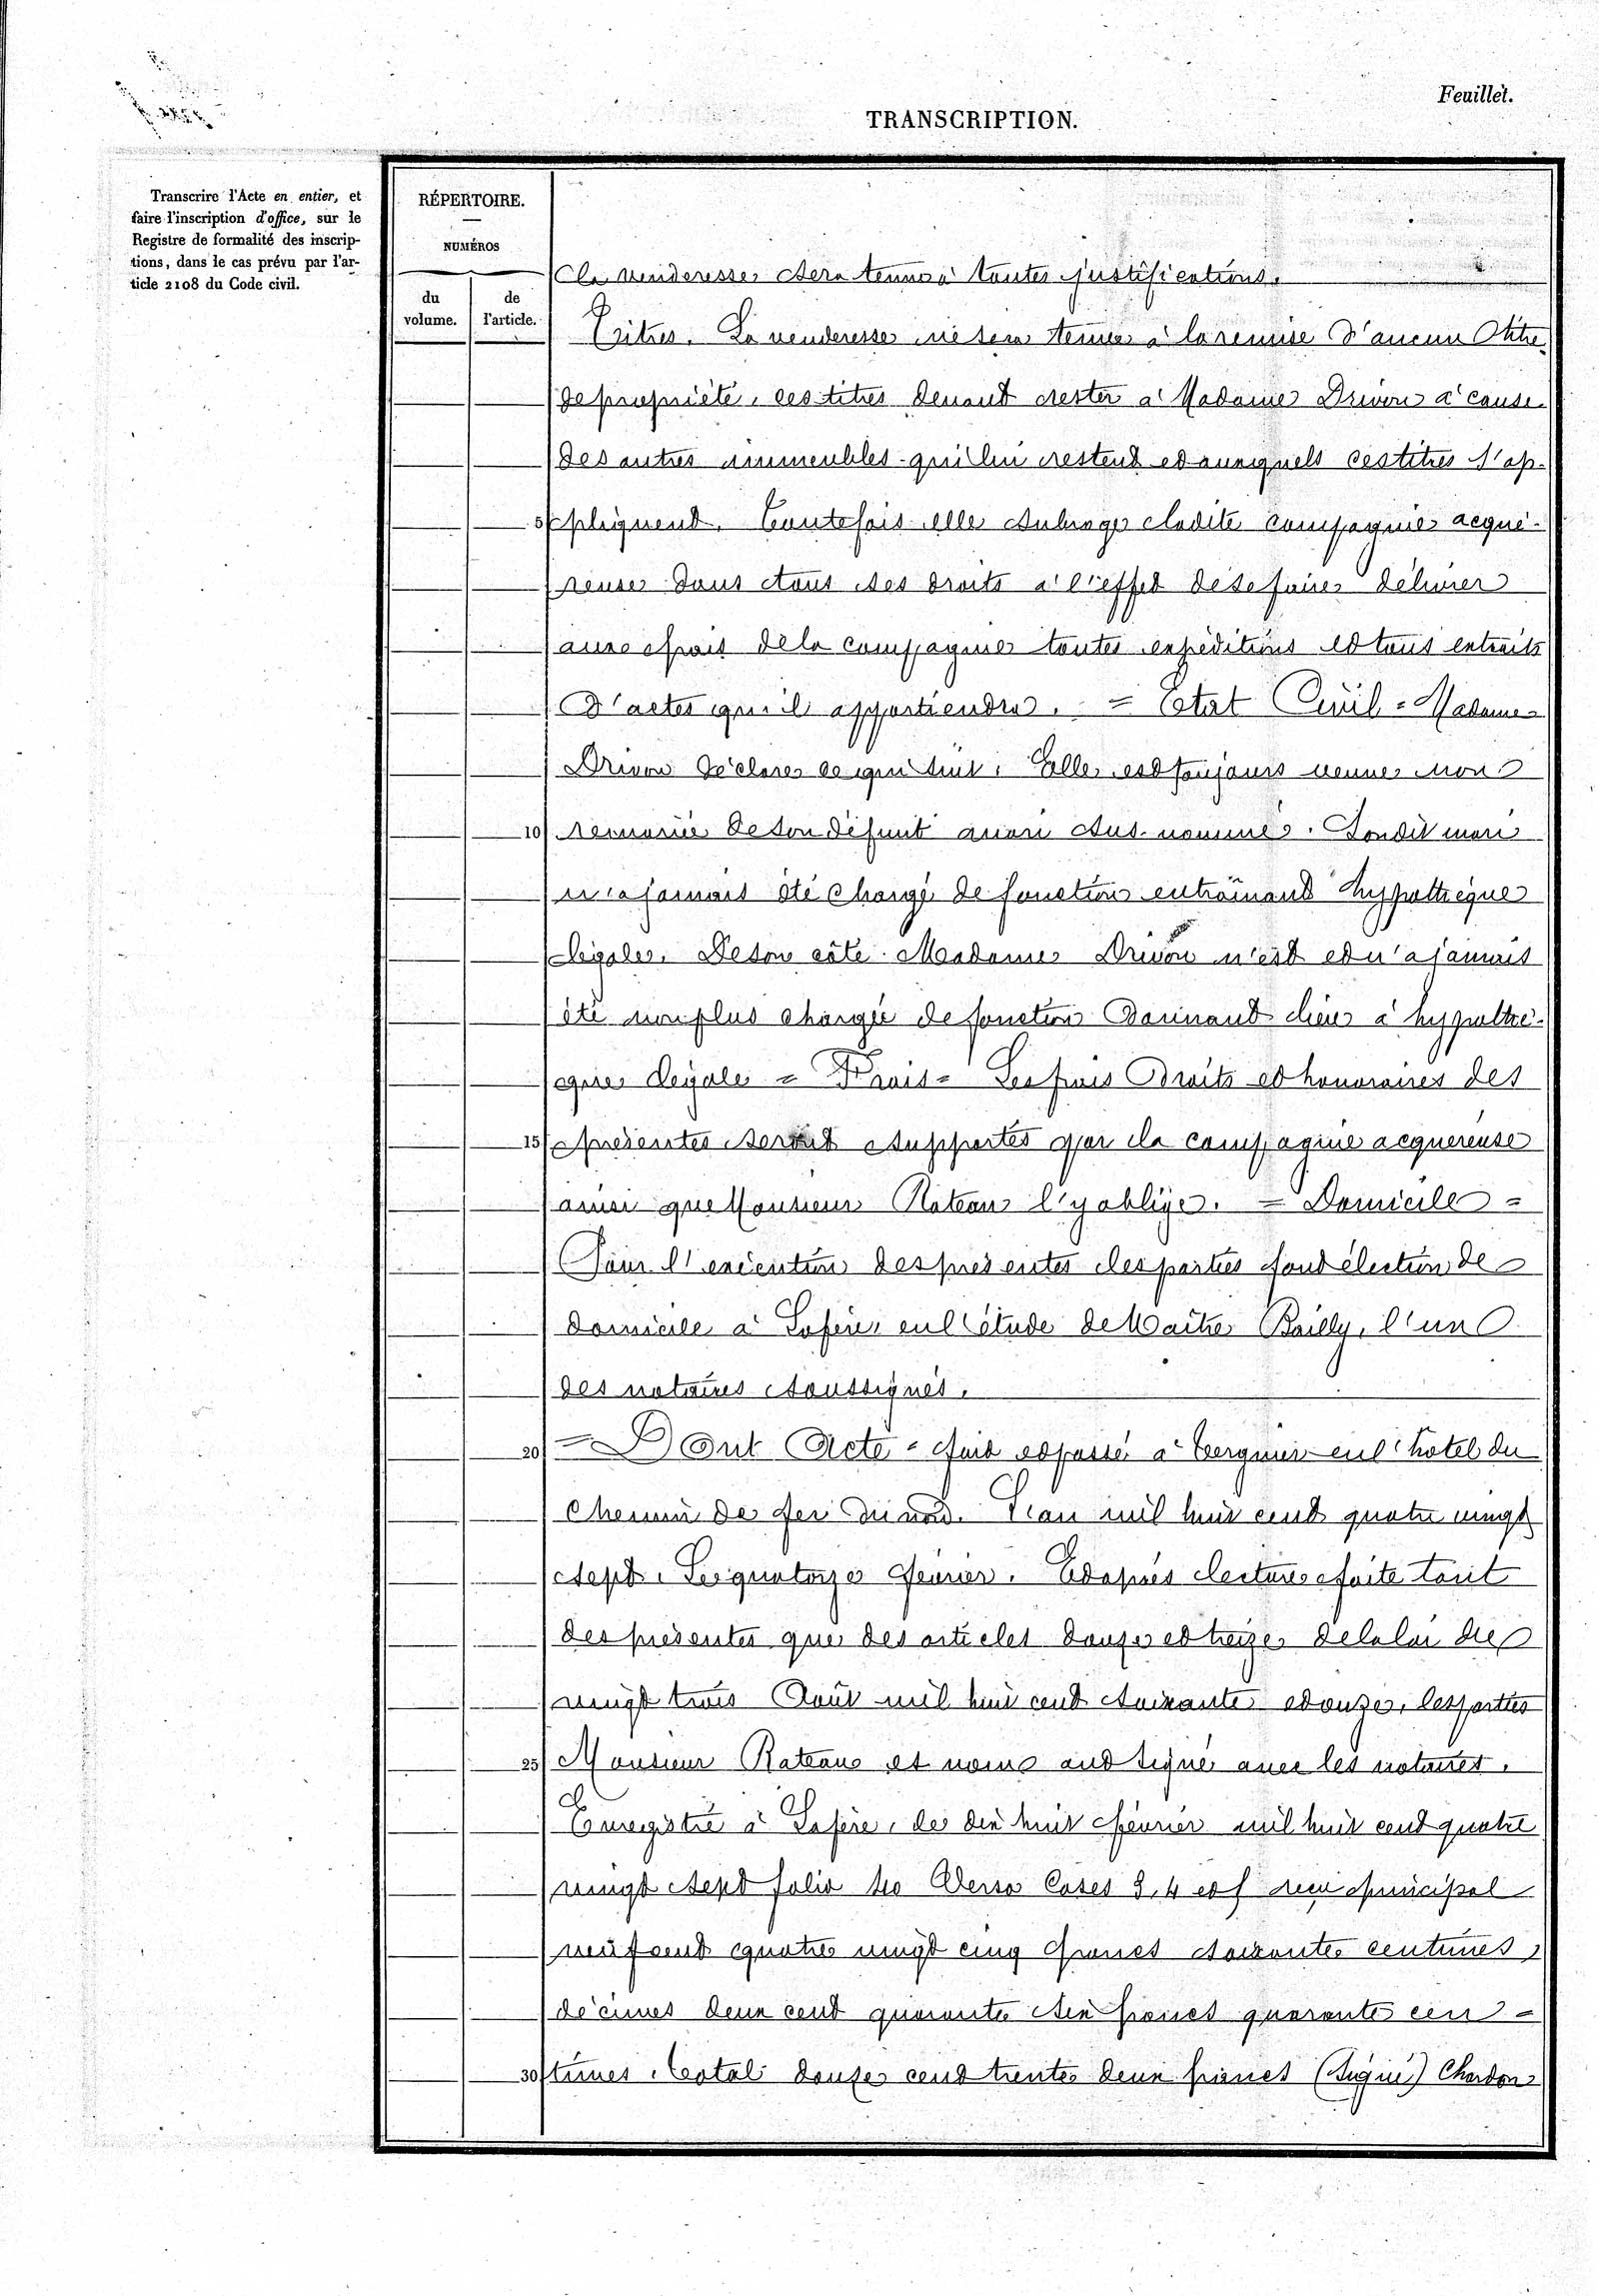 Feuillet.
TRANSCRIPTION.
Transcrire l'Acte en entier, et
faire l'inscription d'office, sur le
Registre de formalité des inscrip-
tions, dans le cas prévu par l'ar-
ticle 2108 du Code civil.
RÉPERTOIRE.
NUMÉROS
du volume.
de l'article.
la venderesse sera tenue à toutes justifications.
Titres. La venderesse ne sera tenue à la remise d'aucun titre
de propriété, ces titres devant rester à Madame Drivon à cause
des autres immeubles qui lui restent et auxquels ces titres s'ap-
5 pliquent. Toutefois elle subroge ladite compagnie acqué-
reuse dans tous ses droits à l'effet de se faire délivrer
aux frais de la compagnie toutes expéditions et tous extraits
d'actes qu'il appartiendra. = Etat Civil = Madame
Drivon déclare ce qui suit. Elle est toujours veuve non
10 remariée de son défunt mari sus-nommé. Sondit mari
n'a jamais été chargé de fonction entraînant hypothèque
légale. De son côté Madame Drivon n'est et n'a jamais
été non plus chargée de fonction donnant lieu à hypothè-
que légale = Frais = Les frais droits et honoraires des
15 présentes seront supportés par la compagnie acquereuse
ainsi que Monsieur Rateau l'y oblige. = Domicile =
Pour l'exécution des présentes les parties font élection de
domicile à Lafère, en l'étude de Maître Bailly, l'un
des notaires soussignés.
20 = Dont Acte = fait et passé à Tergnier en l'hotel du
Chemin de fer du nord. L'an mil huit cent quatre vingt
sept. Le quatorze février. Et après lecture faite tant
des présentes que des articles douze et treize de la loi du
vingt trois Août mil huit cent soixante et onze, les parties
25 Monsieur Rateau et noms ont signé avec les notaires.
Enregistré à Lafère, le dix huit février mil huit cent quatre
vingt sept folio 40 Verso Cases 3, 4 et f reçu principal
neuf cent quatre vingt cinq francs soixante centimes,
décimes deux cent quarante six francs quarante cen-
30 times. Total douze cent trente deux francs (Signé) Chardon